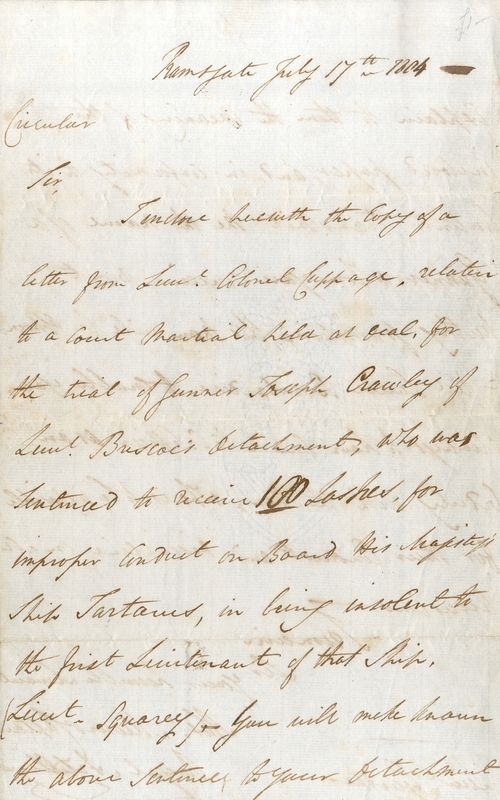 Ramsgate July 17th 1804
Circular
Sir,
I inclose herewith the Copy of a
letter from Lieut. Colonel Cuppage, relative
to a Court Martial held at Deal, for
the trial of Gunner Joseph Crawley of
Lieut. Briscoe's detachment, who was
sentenced to receive 100 Lashes, for
improper Conduct on Board His Majesty's
Ship Tartarus, in being insolent to
the first Lieutenant of that Ship,
(Lieut. Squarey). You will make known
the above Sentence to your detachment